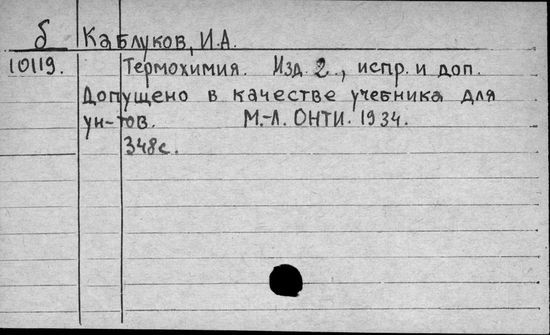 б Каблуков, И.А.
10119. Термохимия. Изд. 2., испр. и доп.
Допущено в качестве учебника для
ун-тов. М.-Л. ОНТИ. 1934.
348с.